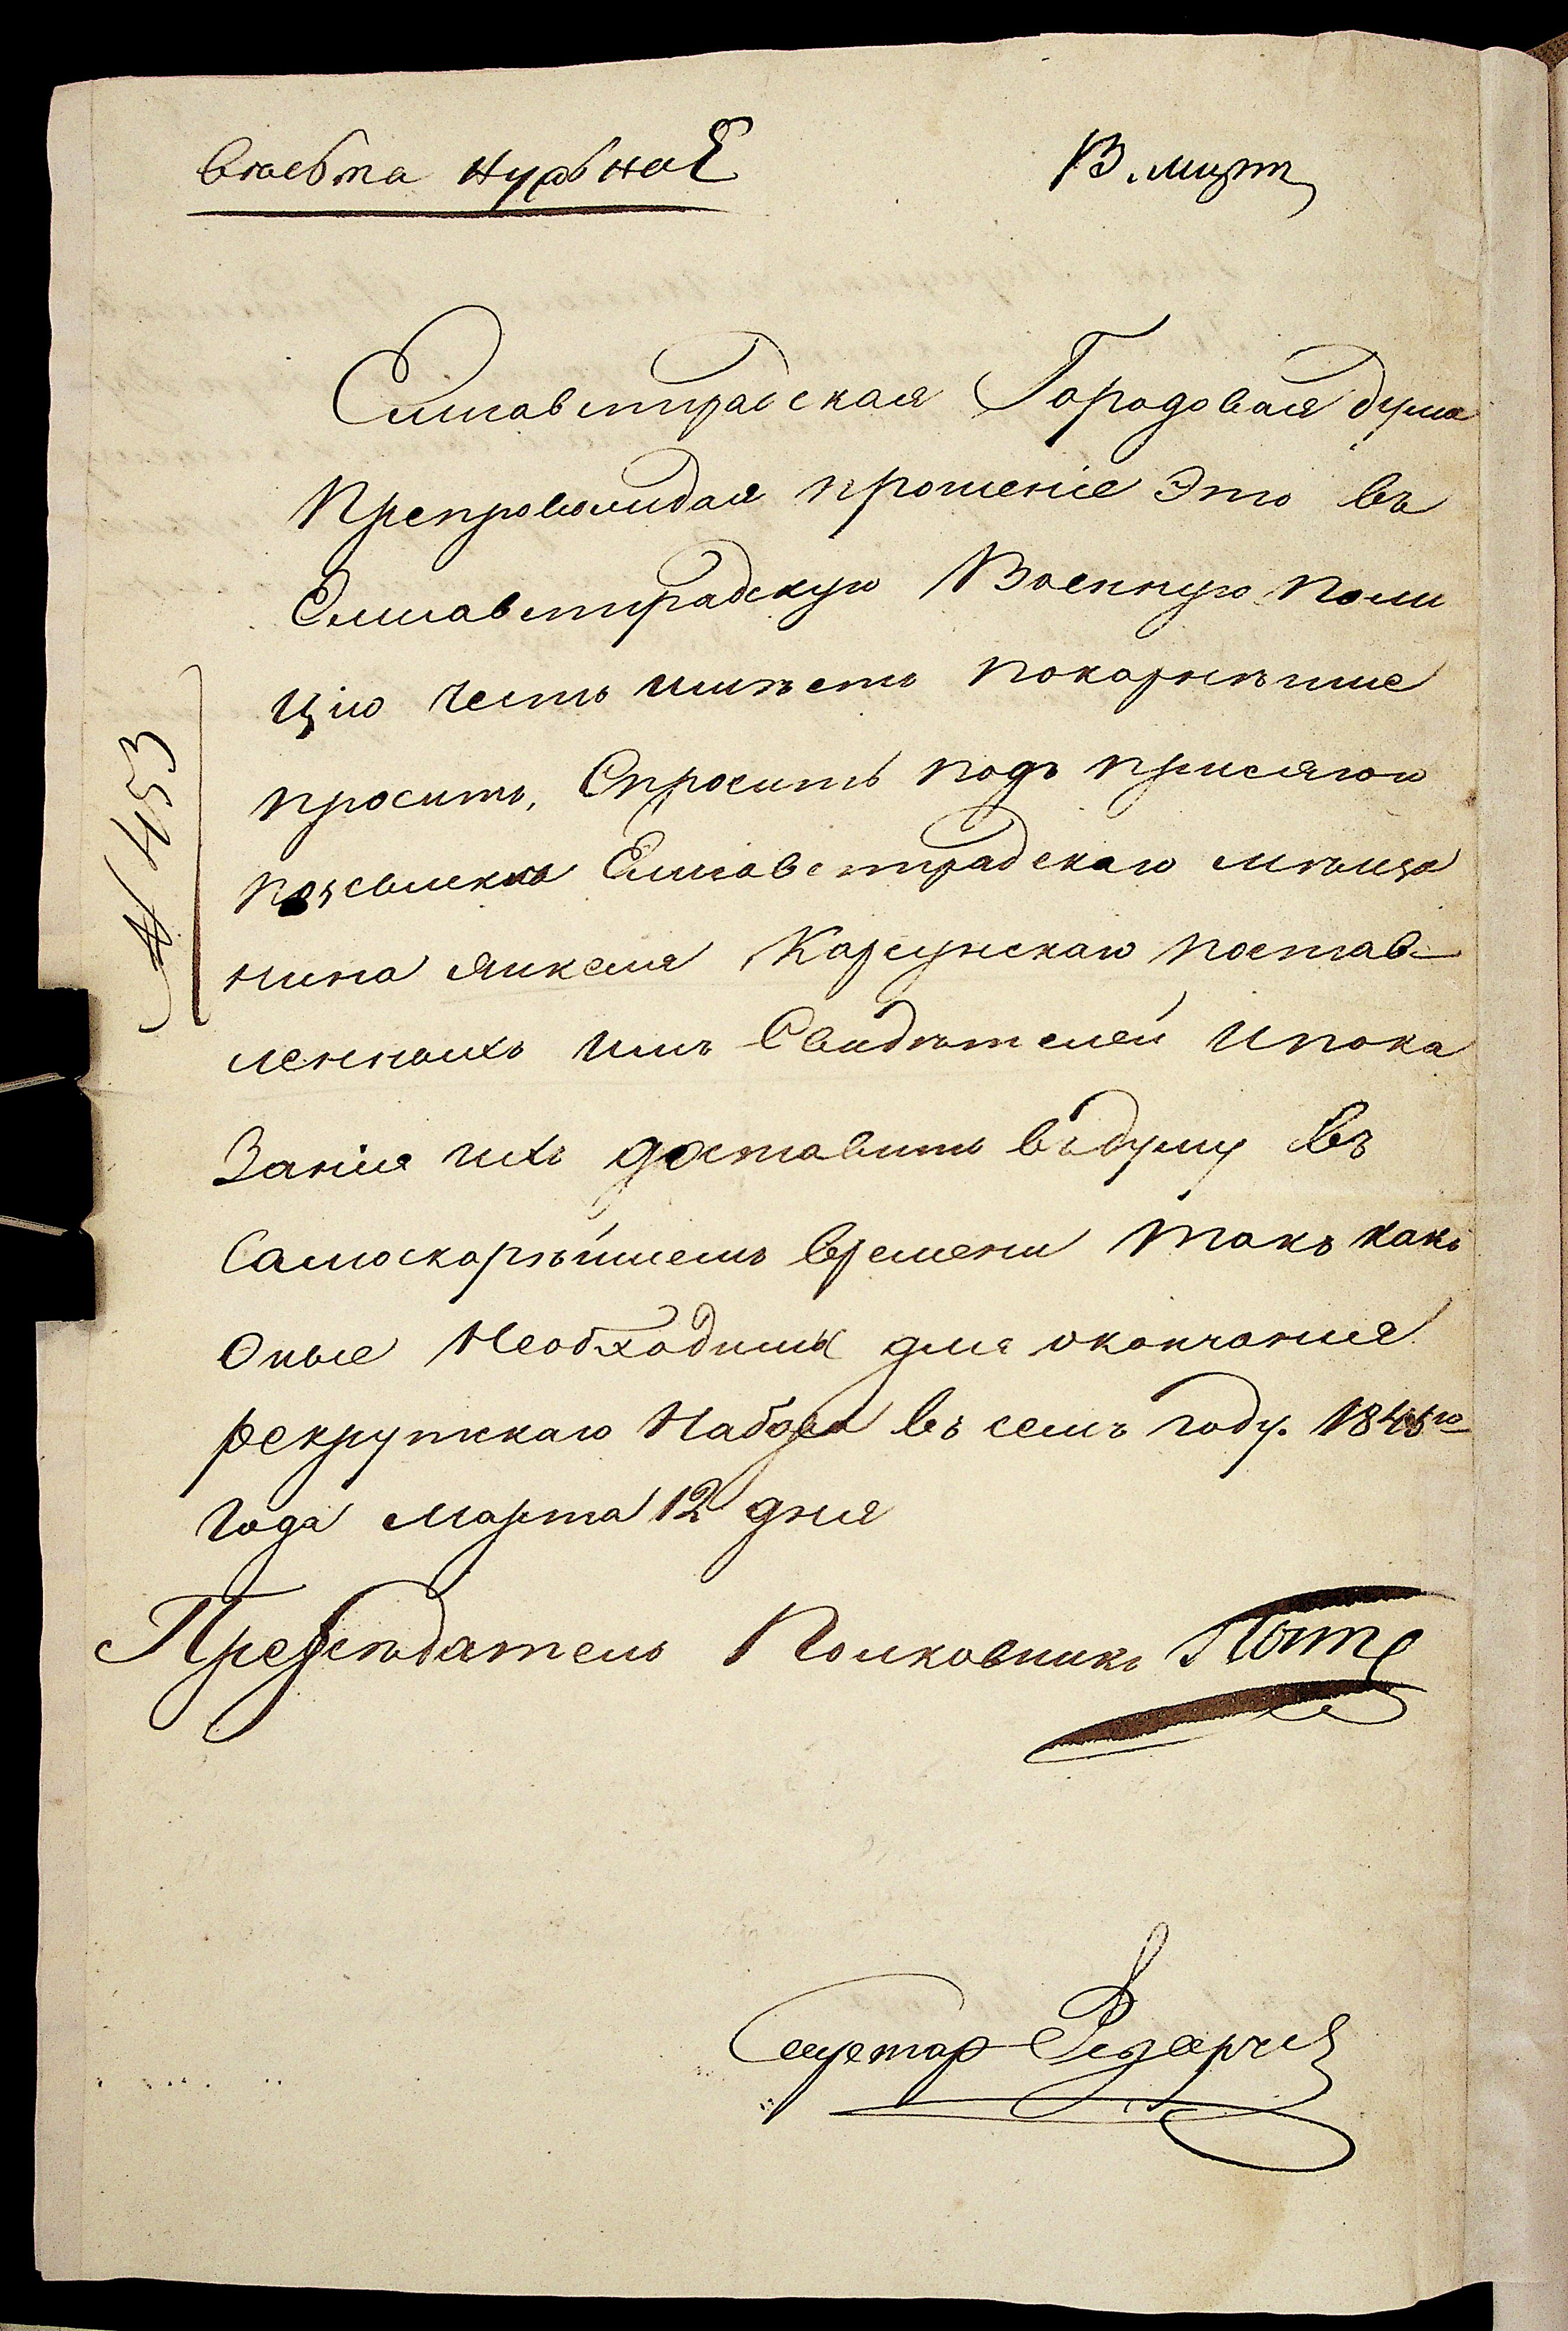 Елисавѣтградская Городовая дума
Препровождая прошеніе Это въ
Елисаветградскую Военную Поли
цію Честь имѣетъ покорнѣйше
просить, Спросить подъ присягою
Елисаветградскаго мѣща
нина Янкеля Карсунскаго постав-
ленныхъ имъ Свидѣтелей и пока
Занія ихъ доставить въ думу въ
Самоскорѣйшемъ времени такъ какъ
Оные Необходимы для окончанія
рекрутскаго Набора въ семъ году. 1845го
Года Марта 12 дня
Предсѣдатель Полковникъ
№ 453